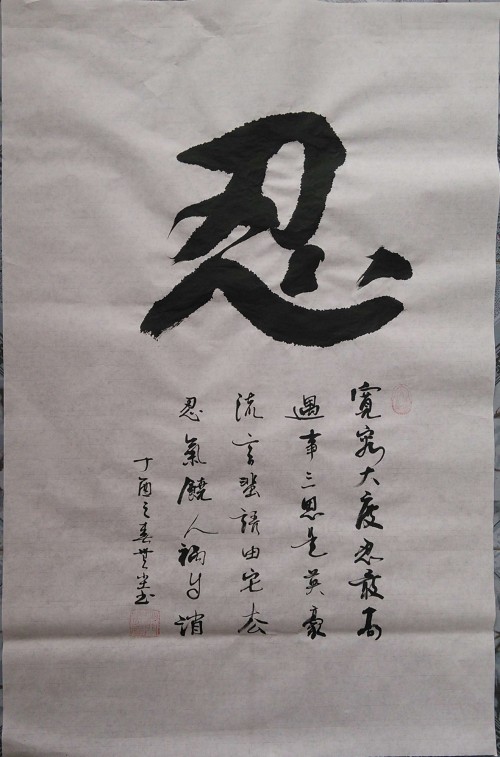 忍
寬容大度忍最高
遇事三思是英豪
流言蜚語由它去
忍氣饒人禍自消
丁酉之春書